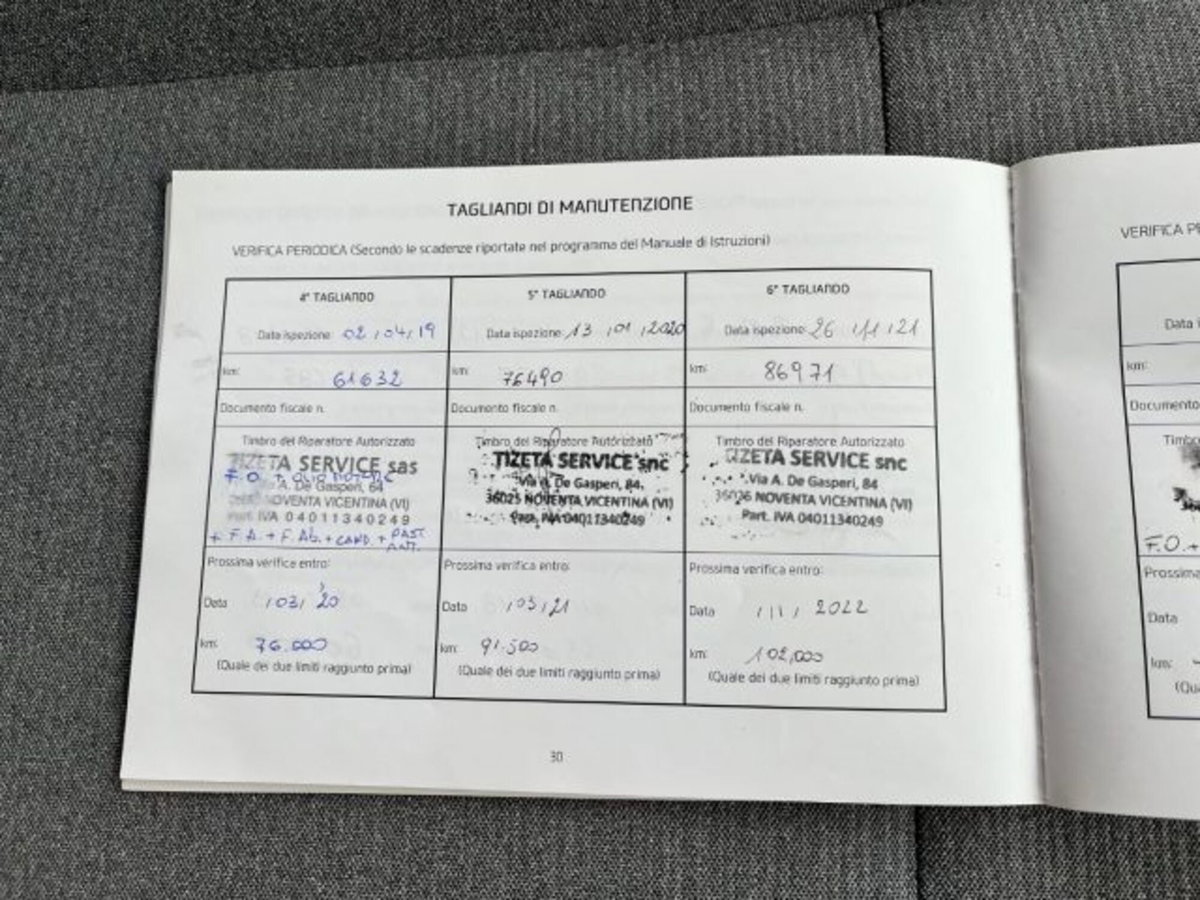 TAGLIANDI DI MANUTENZIONE
VERIFICA PERIODICA (Secondo le scadenze riportate nel programma del Manuale di Istruzioni)
4° TAGLIANDO
Data ispezione: 02/04/19
km: 61632
Documento fiscale n.
Timbro del Riparatore Autorizzato
TIZETA SERVICE sas
F.O. + OLIO MOTORE
A. De Gasperi, 84
NOVENTA VICENTINA (VI)
Part. IVA 04011340249
+ F.A. + F.Ab. + CAND. + PAST
ANT.
Prossima verifica entro:
Data /03/20
km: 76.000
(Quale dei due limiti raggiunto prima)
5° TAGLIANDO
Data ispezione: 13/01/2020
km: 76490
Documento fiscale n.
Timbro del Riparatore Autorizzato
TIZETA SERVICE snc
Via A. De Gasperi, 84
36025 NOVENTA VICENTINA (VI)
Part. IVA 04011340249
Prossima verifica entro:
Data /03/21
km: 91.500
(Quale dei due limiti raggiunto prima)
6° TAGLIANDO
Data ispezione: 26/11/21
km: 86971
Documento fiscale n.
Timbro del Riparatore Autorizzato
TIZETA SERVICE snc
Via A. De Gasperi, 84
NOVENTA VICENTINA (VI)
Part. IVA 04011340249
Prossima verifica entro:
Data /11/2022
km: 102,000
(Quale dei due limiti raggiunto prima)
30
VERIFICA PE
Data i
km:
Documento
Timbro
F.O. +
Prossima
Data
km:
(Qua